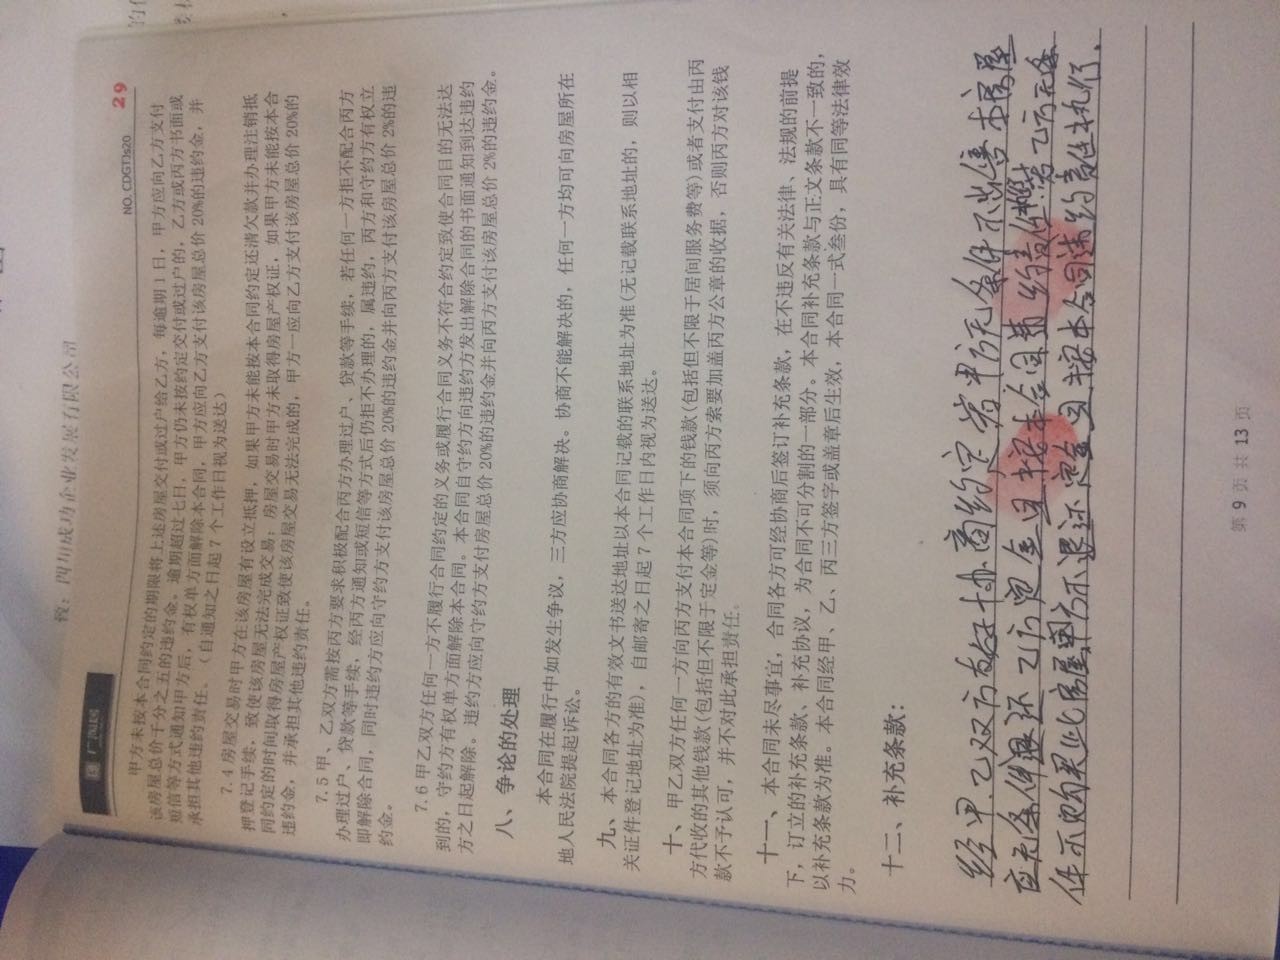 致：四川成功企业发展有限公司
NO. CDGTJs20 29
甲方未按本合同约定的期限将上述房屋交付或过户给乙方，每逾期1日，甲方应向乙方支付
该房屋总价千分之五的违约金。逾期超过七日，甲方仍未按约定交付或过户的，乙方或丙方书面或
短信等方式通知甲方后，有权单方面解除本合同，甲方应向乙方支付该房屋总价 20%的违约金，并
承担其他违约责任。（自通知之日起 7 个工作日视为送达）
7.4 房屋交易时甲方在该房屋有设立抵押，如果甲方未能按本合同约定还清欠款并办理注销抵
押登记手续，致使该房屋无法完成交易；房屋交易时甲方未取得房屋产权证，如果甲方未能按本合
同约定的时间取得房屋产权证致使该房屋交易无法完成的，甲方一应向乙方支付该房屋总价 20%的
违约金，并承担其他违约责任。
7.5 甲、乙双方需按丙方要求积极配合丙方办理过户、贷款等手续，若任何一方拒不配合丙方
办理过户、贷款等手续，经丙方通知或短信等方式后仍拒不办理的，属违约，丙方和守约方有权立
即解除合同，同时违约方应向守约方支付该房屋总价 20%的违约金并向丙方支付该房屋总价 2%的违
约金。
7.6 甲乙双方任何一方不履行合同约定的义务或履行合同义务不符合约定致使合同目的无法达
到的，守约方有权单方面解除本合同。本合同自守约方向违约方发出解除合同的书面通知到达违约
方之日起解除。违约方应向守约方支付房屋总价 20%的违约金并向丙方支付该房屋总价 2%的违约金。
八、争论的处理
本合同在履行中如发生争议，三方应协商解决。协商不能解决的，任何一方均可向房屋所在
地人民法院提起诉讼。
九、本合同各方的有效文书送达地址以本合同记载的联系地址为准（无记载联系地址的，则以相
关证件登记地址为准，自邮寄之日起 7 个工作日内视为送达。
十、甲乙双方任何一方向丙方支付本合同项下的钱款（包括但不限于居间服务费等）或者支付由丙
方代收的其他钱款（包括但不限于定金等）时，须向丙方索要加盖丙方公章的收据，否则丙方对该钱
款不予认可，并不对此承担责任。
十一、本合同未尽事宜，合同各方可经协商后签订补充条款，在不违反有关法律、法规的前提
下，订立的补充条款、补充协议，为合同不可分割的一部分。本合同补充条款与正文条款不一致的，
以补充条款为准。本合同经甲、乙、丙三方签字或盖章后生效，本合同一式叁份，具有同等法律效
力。
十二、补充条款：
经甲、乙双方友好协商约定 若甲方无条件不出售本房屋
应无条件退还乙方定金且按本合同 违约责任 若乙方无条
件不购买此房屋 甲方不退还定金且按本合同违约责任执行.
第 9 页 共 13 页